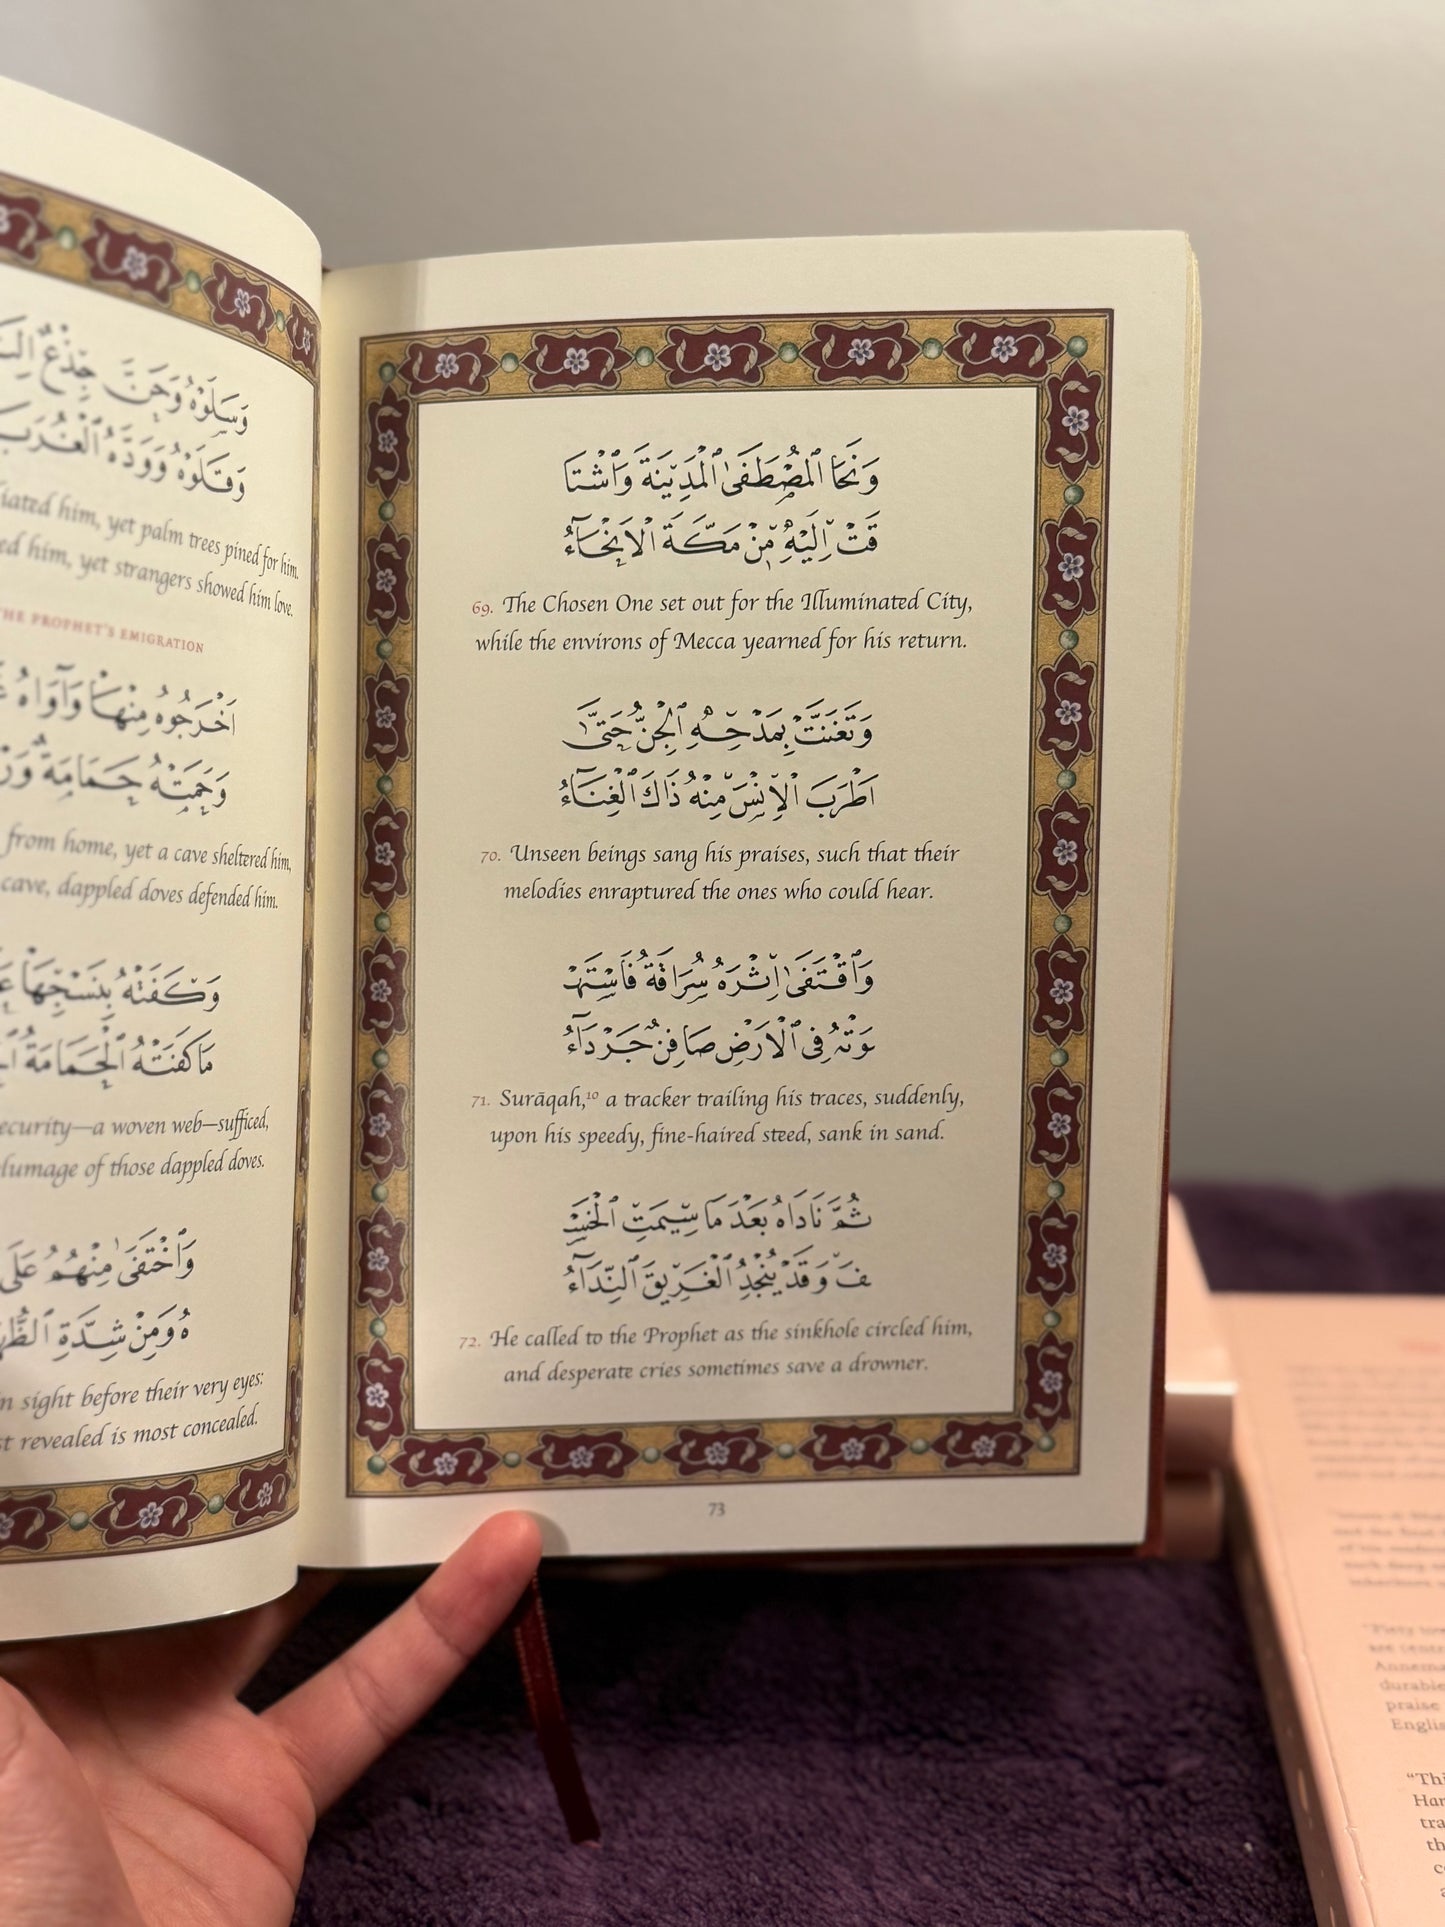 وَسَلَوْهُ وَحَنَّ جِذْعٌ
وَقَلَوْهُ وَوَدَّهُ ٱلْغُرَبَ
iated him, yet palm trees pined for him.
ed him, yet strangers showed him love.
THE PROPHET'S EMIGRATION
اَخْرَجُوهُ مِنْهَا وَآوَاهُ
وَحَمَتْهُ حَمَامَةٌ
from home, yet a cave sheltered him,
cave, dappled doves defended him.
وَكَفَتْهُ بِنَسْجِهَا
مَا كَفَتْهُ ٱلْحَمَامَةُ
ecurity—a woven web—sufficed,
lumage of those dappled doves.
وَٱخْتَفَىٰ مِنْهُمُ عَلَى
هُ وَمِنْ شِدَّةِ ٱلظُّهُ
n sight before their very eyes:
st revealed is most concealed.
وَنَحَا ٱلْمُصْطَفَىٰ ٱلْمَدِينَةَ وَٱشْتَا
قَتْ اِلَيْهِ مِنْ مَكَّةَ ٱلْاَنْحَآءُ
69. The Chosen One set out for the Illuminated City,
while the environs of Mecca yearned for his return.
وَتَغَنَّتْ بِمَدْحِهِ ٱلْجِنُّ حَتَّىٰ
اَطْرَبَ ٱلْاِنْسَ مِنْهُ ذَاكَ ٱلْغِنَآءُ
70. Unseen beings sang his praises, such that their
melodies enraptured the ones who could hear.
وَٱقْتَفَىٰ اِثْرَهُ سُرَاقَةُ فَاسْتَهْ
وَتْهُ فِى ٱلْاَرْضِ صَافِنٌ جَرْدَآءُ
71. Surāqah,10 a tracker trailing his traces, suddenly,
upon his speedy, fine-haired steed, sank in sand.
ثُمَّ نَادَاهُ بَعْدَ مَا سِيمَتِ ٱلْخَسْ
فَ وَقَدْ يُنْجِدُ ٱلْغَرِيقَ ٱلنِّدَآءُ
72. He called to the Prophet as the sinkhole circled him,
and desperate cries sometimes save a drowner.
73